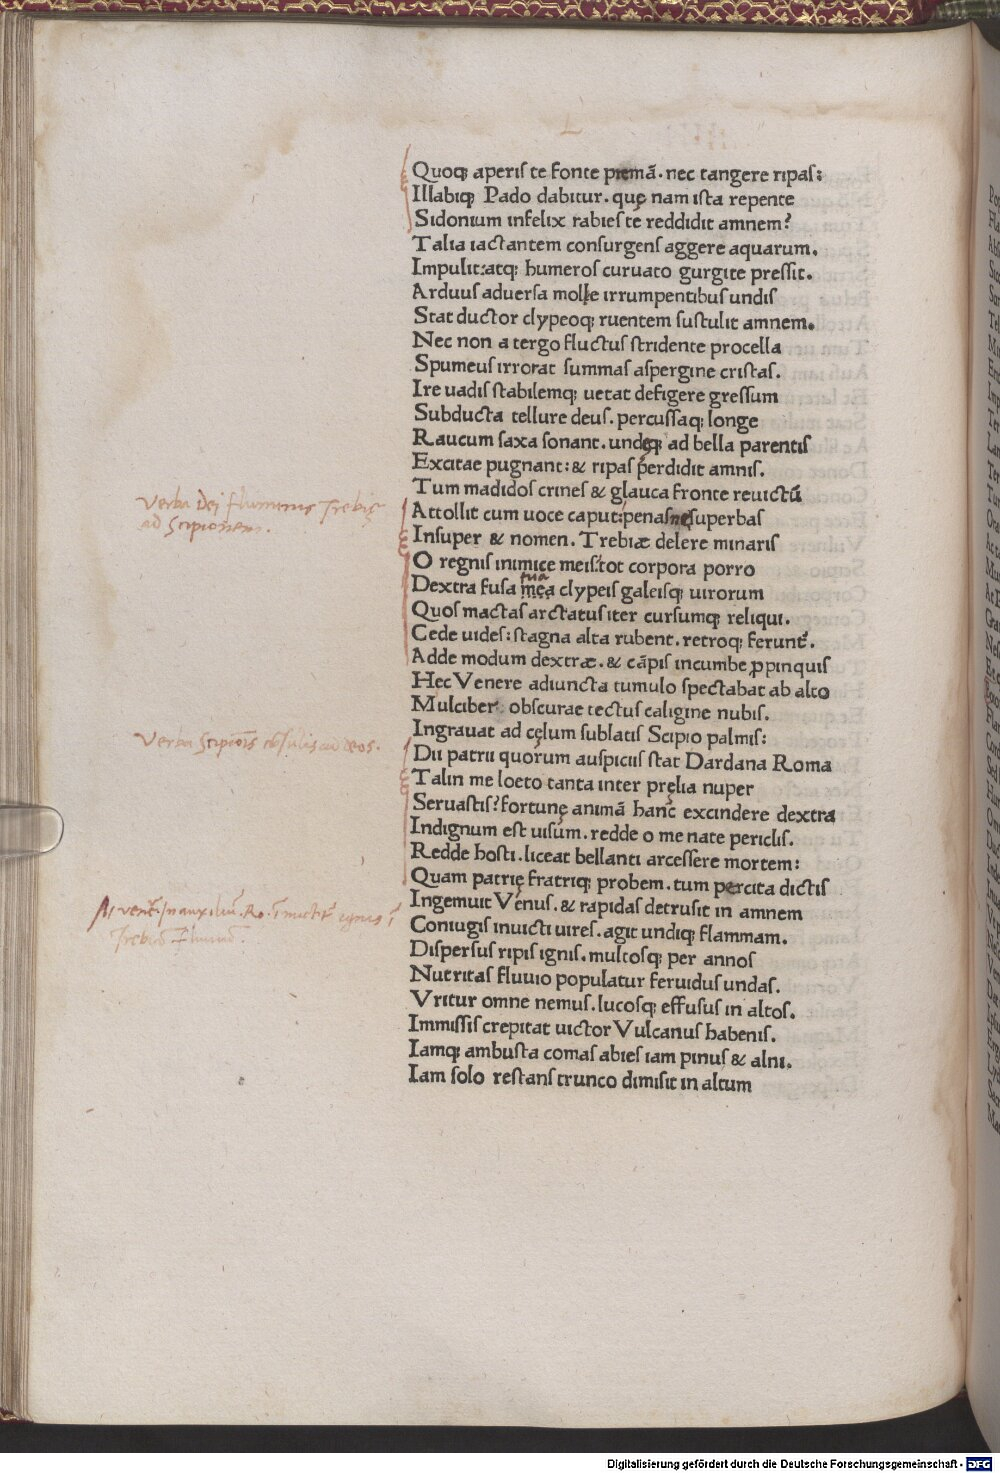 Quoqꝫ aperiſ te fonte premā. nec tangere ripaſ:
Illabiqꝫ Pado dabitur. quę nam iſta repente
Sidonium infelix rabieſ te reddidit amnem?
Talia iactantem conſurgenſ aggere aquarum.
Impulit:atqꝫ humeroſ curuato gurgite preſſit.
Arduuſ aduerſa molle irrumpentibuſ undiſ
Stat ductor clypeoqꝫ ruentem ſuſtulit amnem.
Nec non a tergo fluctuſ ſtridente procella
Spumeuſ irrorat ſummaſ aſpergine criſtaſ.
Ire uadiſ ſtabilemqꝫ uetat defigere greſſum
Subducta tellure deuſ. percuſſaqꝫ longe
Raucum ſaxa ſonant. undęqꝫ ad bella parentiſ
Excitae pugnant: & ripaſ perdidit amniſ.
Tum madidoſ crineſ & glauca fronte reuictū
verba Dei fluminis Trebię
ad Scipionem.
Attollit cum uoce caput:penaſ ne ſuperbaſ
Inſuper & nomen. Trebiæ delere minariſ
O regniſ inimice meiſ:tot corpora porro
tua
Dextra fuſa mea clypeiſ galeiſqꝫ uirorum
Quoſ mactaſ arctatuſ iter curſumqꝫ reliqui.
Cede uideſ: ſtagna alta rubent. retroqꝫ ferunt̃.
Adde modum dextræ. & cāpiſ incumbe ꝓpinquiſ
Hec Venere adiuncta tumulo ſpectabat ab alto
Mulciber obſcurae tectuſ caligine nubiſ.
Ingrauat ad cęlum ſublatiſ Scipio palmiſ:
Verba Scipiōis cōſulis ad deos.
Dii patrii quorum auſpiciiſ ſtat Dardana Roma
Talin me loeto tanta inter pręlia nuper
Seruaſtiſ? fortunę animā hanc excindere dextra
Indignum eſt uiſum. redde o me nate pericliſ.
Redde hoſti. liceat bellanti arceſſere mortem:
Quam patrię fratriqꝫ probem. tum percita dictiſ
Ingemuit Venuſ. & rapidaſ detruſit in amnem
Coniugiſ inuicti uireſ. agit undiqꝫ flammam.
Diſperſuſ ripiſ igniſ. multoſqꝫ per annoſ
Nutritaſ fluuio populatur feruiduſ undaſ.
Vritur omne nemuſ. lucoſqꝫ effuſuſ in altoſ.
Immiſſiſ crepitat uictor Vulcanuſ habeniſ.
Iamqꝫ ambuſta comaſ abieſ iam pinuſ & alni.
Iam ſolo reſtanſ trunco dimiſit in altum
Digitalisierung gefördert durch die Deutsche Forschungsgemeinschaft - DFG